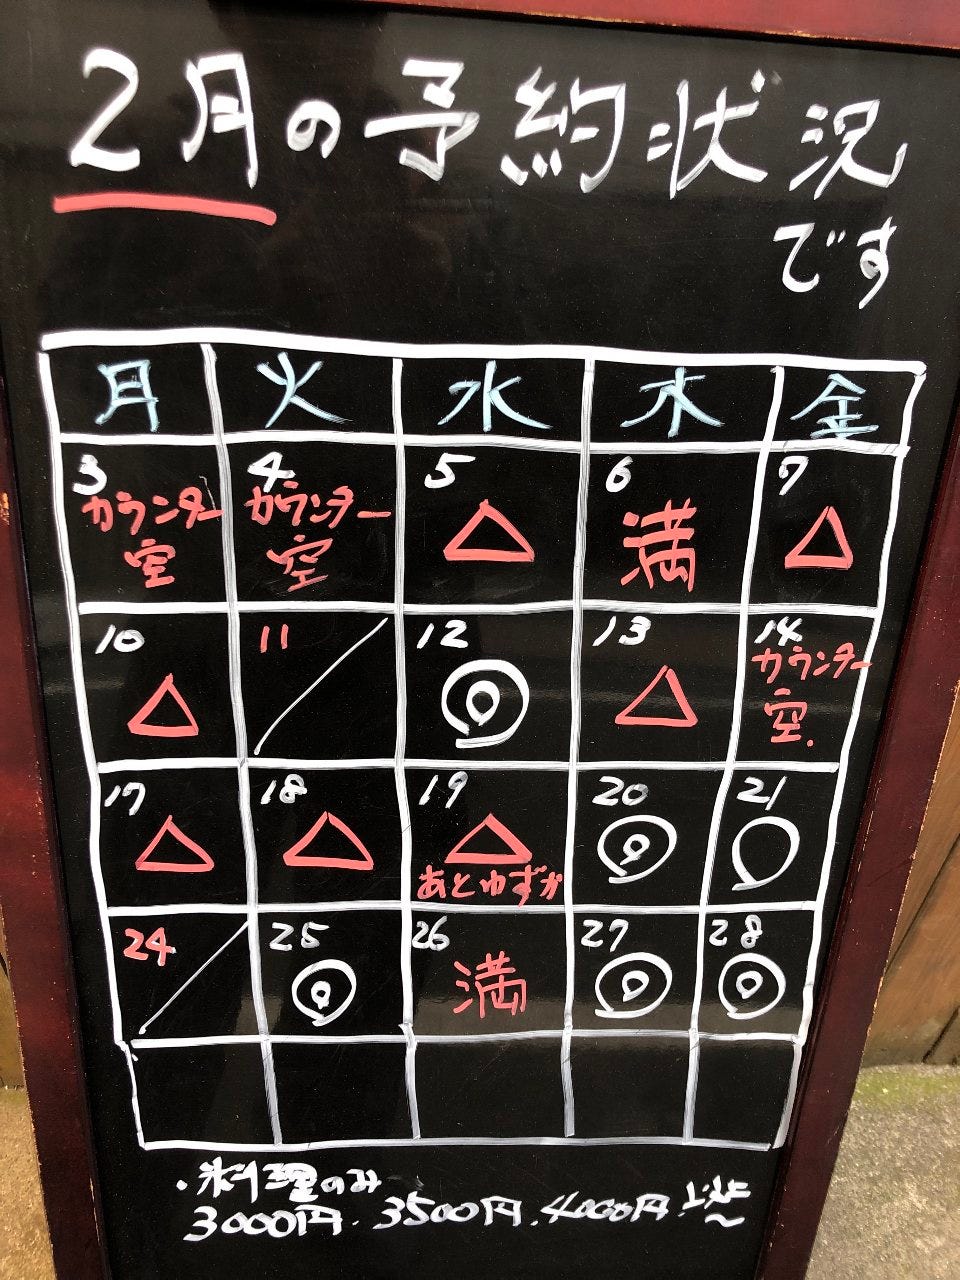 2月の予約状況
です
月 火 水 木 金
3 4 5 6 7
カウンター カウンター △ 満 △
空 空
10 11 12 13 14
△ ◎ △ カウンター
空.
17 18 19 20 21
△ △ △ ◎ ○
あとわずか
24 25 26 27 28
◎ 満 ◎ ◎
・料理のみ
3000円・3500円・4000円